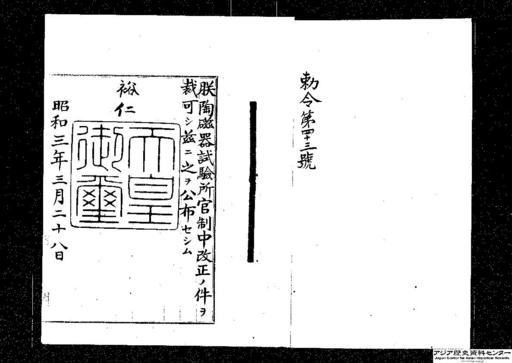 勅令第四十三號
朕陶磁器試驗所官制中改正ノ件ヲ
裁可シ茲ニ之ヲ公布セシム
裕仁
天皇御璽
昭和三年三月二十八日
アジア歴史資料センター
Japan Center for Asian Historical Records